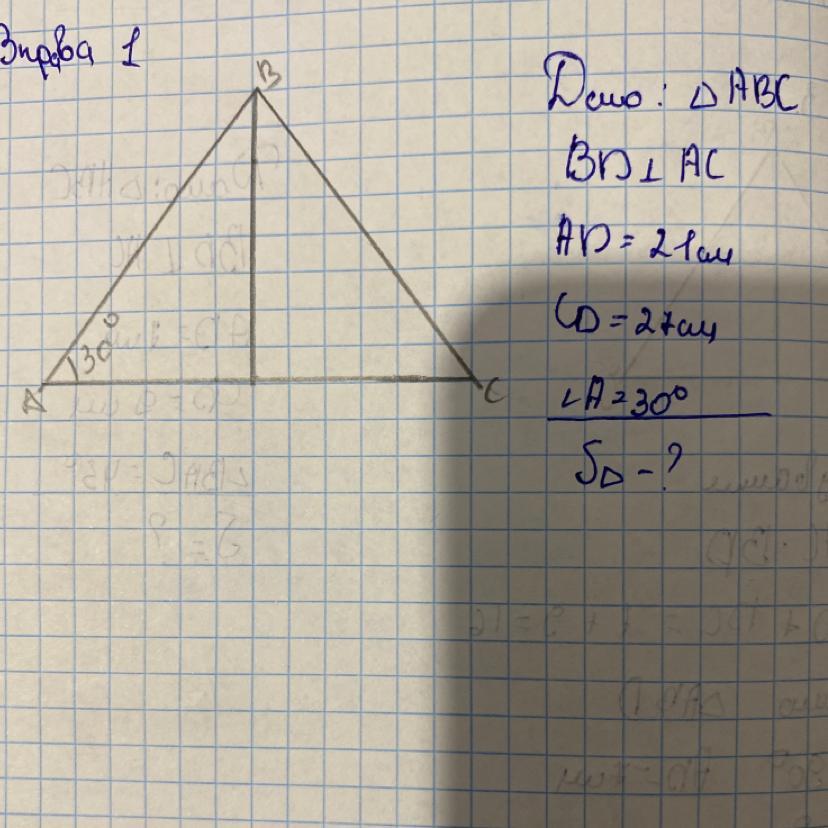 Вправа 1
B
30°
A
C
Дано: △ ABC
BD ⊥ AC
AD = 21см
CD = 27см
∠A = 30°
S△ - ?